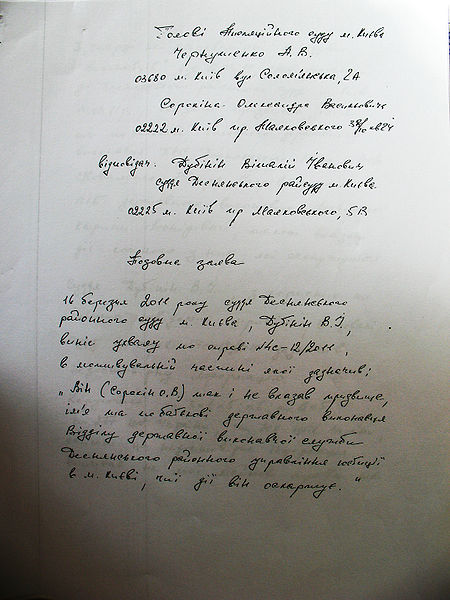 Голові Апеляційного суду м. Києва
Чернушенко А.В.
03680 м. Київ вул Солом'янська, 2А
Сорокіна Олександра Васильовича
02222 м. Київ пр. Маяковського
відповідач: Дубінін Віталій Іванович
суддя Деснянського райсуду м. Києва
02225 м. Київ пр Маяковського, 5В
Позовна заява
16 березня 2011 року суддя Деснянського
районного суду м. Києва, Дубінін В.І,
виніс ухвалу по справі №4с-12/2011,
в мотивувальній частині якої зазначив:
„Він (Сорокін О.В) так і не вказав прізвище,
ім'я та по батькові державного виконавця
Відділу державної виконавчої служби
Деснянського районного управління юстиції
в м. Києві, чиї дії він оскаржує."